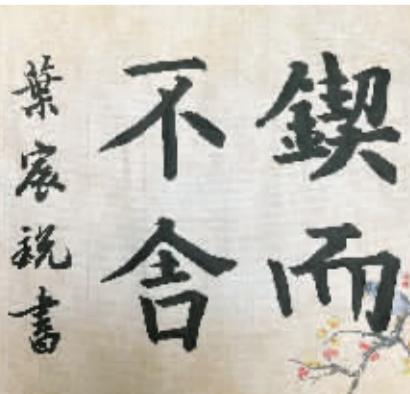 鍥而
不舍
葉宸稅書